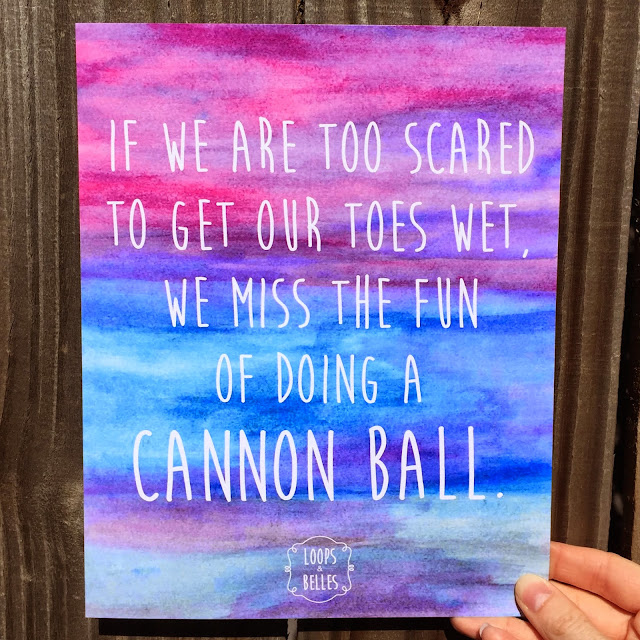 IF WE ARE TOO SCARED
TO GET OUR TOES WET,
WE MISS THE FUN
OF DOING A
CANNON BALL.
LOOPS
&
BELLES